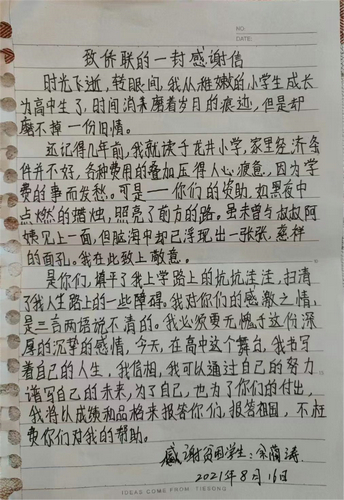 NO.
DATE:
致侨联的一封感谢信
时光飞逝，转眼间，我从稚嫩的小学生成长
为高中生了，时间消来磨着岁月的痕迹，但是却
磨不掉一份旧情。
还记得几年前，我就读于龙井小学，家里经济条
件并不好，各种费用的叠加压得人心疲惫，因为学
费的事而发愁。可是——你们的资助，如黑夜中
点燃的蜡烛，照亮了前方的路。虽未曾与叔叔阿
姨见上一面，但脑海中却已浮现出一张张慈祥
的面孔。我在此致上敬意。
是你们，填平了我上学路上的坑坑洼洼，扫清
了我人生路上的一些障碍，我对你们的感激之情，
是三言两语说不清的。我必须要无愧于这份深
厚的沉挚的感情，今天，在高中这个舞台，我书写
着自己的人生，我信相，我可以通过自己的努力
谱写自己的未来，为了自己，也为了你们的付出，
我将以成绩和品格来报答你们，报答祖国，不枉
费你们对我的帮助。
感谢贫困学生：余荫涛
2021年8月16日
IDEAS COME FROM TIESONG